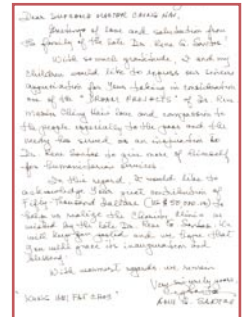 Dear SUPREME MASTER CHING HAI,
Greetings of love and salutation from
the family of the late Dr. Rene G. Santos!
With so much gratitude, I and my
children would like to express our sincere
appreciation for your taking in consideration
one of the "DREAM PROJECTS" of Dr. Rene
Master Ching Hai's love and compassion to
the people especially to the poor and the
needy has served as an inspiration to
Dr. Rene Santos to give more of himself
for humanitarian services
In this regard, I would like to
acknowledge your great contribution of
Fifty-Thousand Dollars (US$ 50,000.00) to
help us realize the Charity Clinic as
by the late Dr. Rene G. Santos. We
will keep you posted and we hope that
you will grace its inauguration and
blessing.
With warmest regards we remain
Very sincerely yours,
G. SANTOS